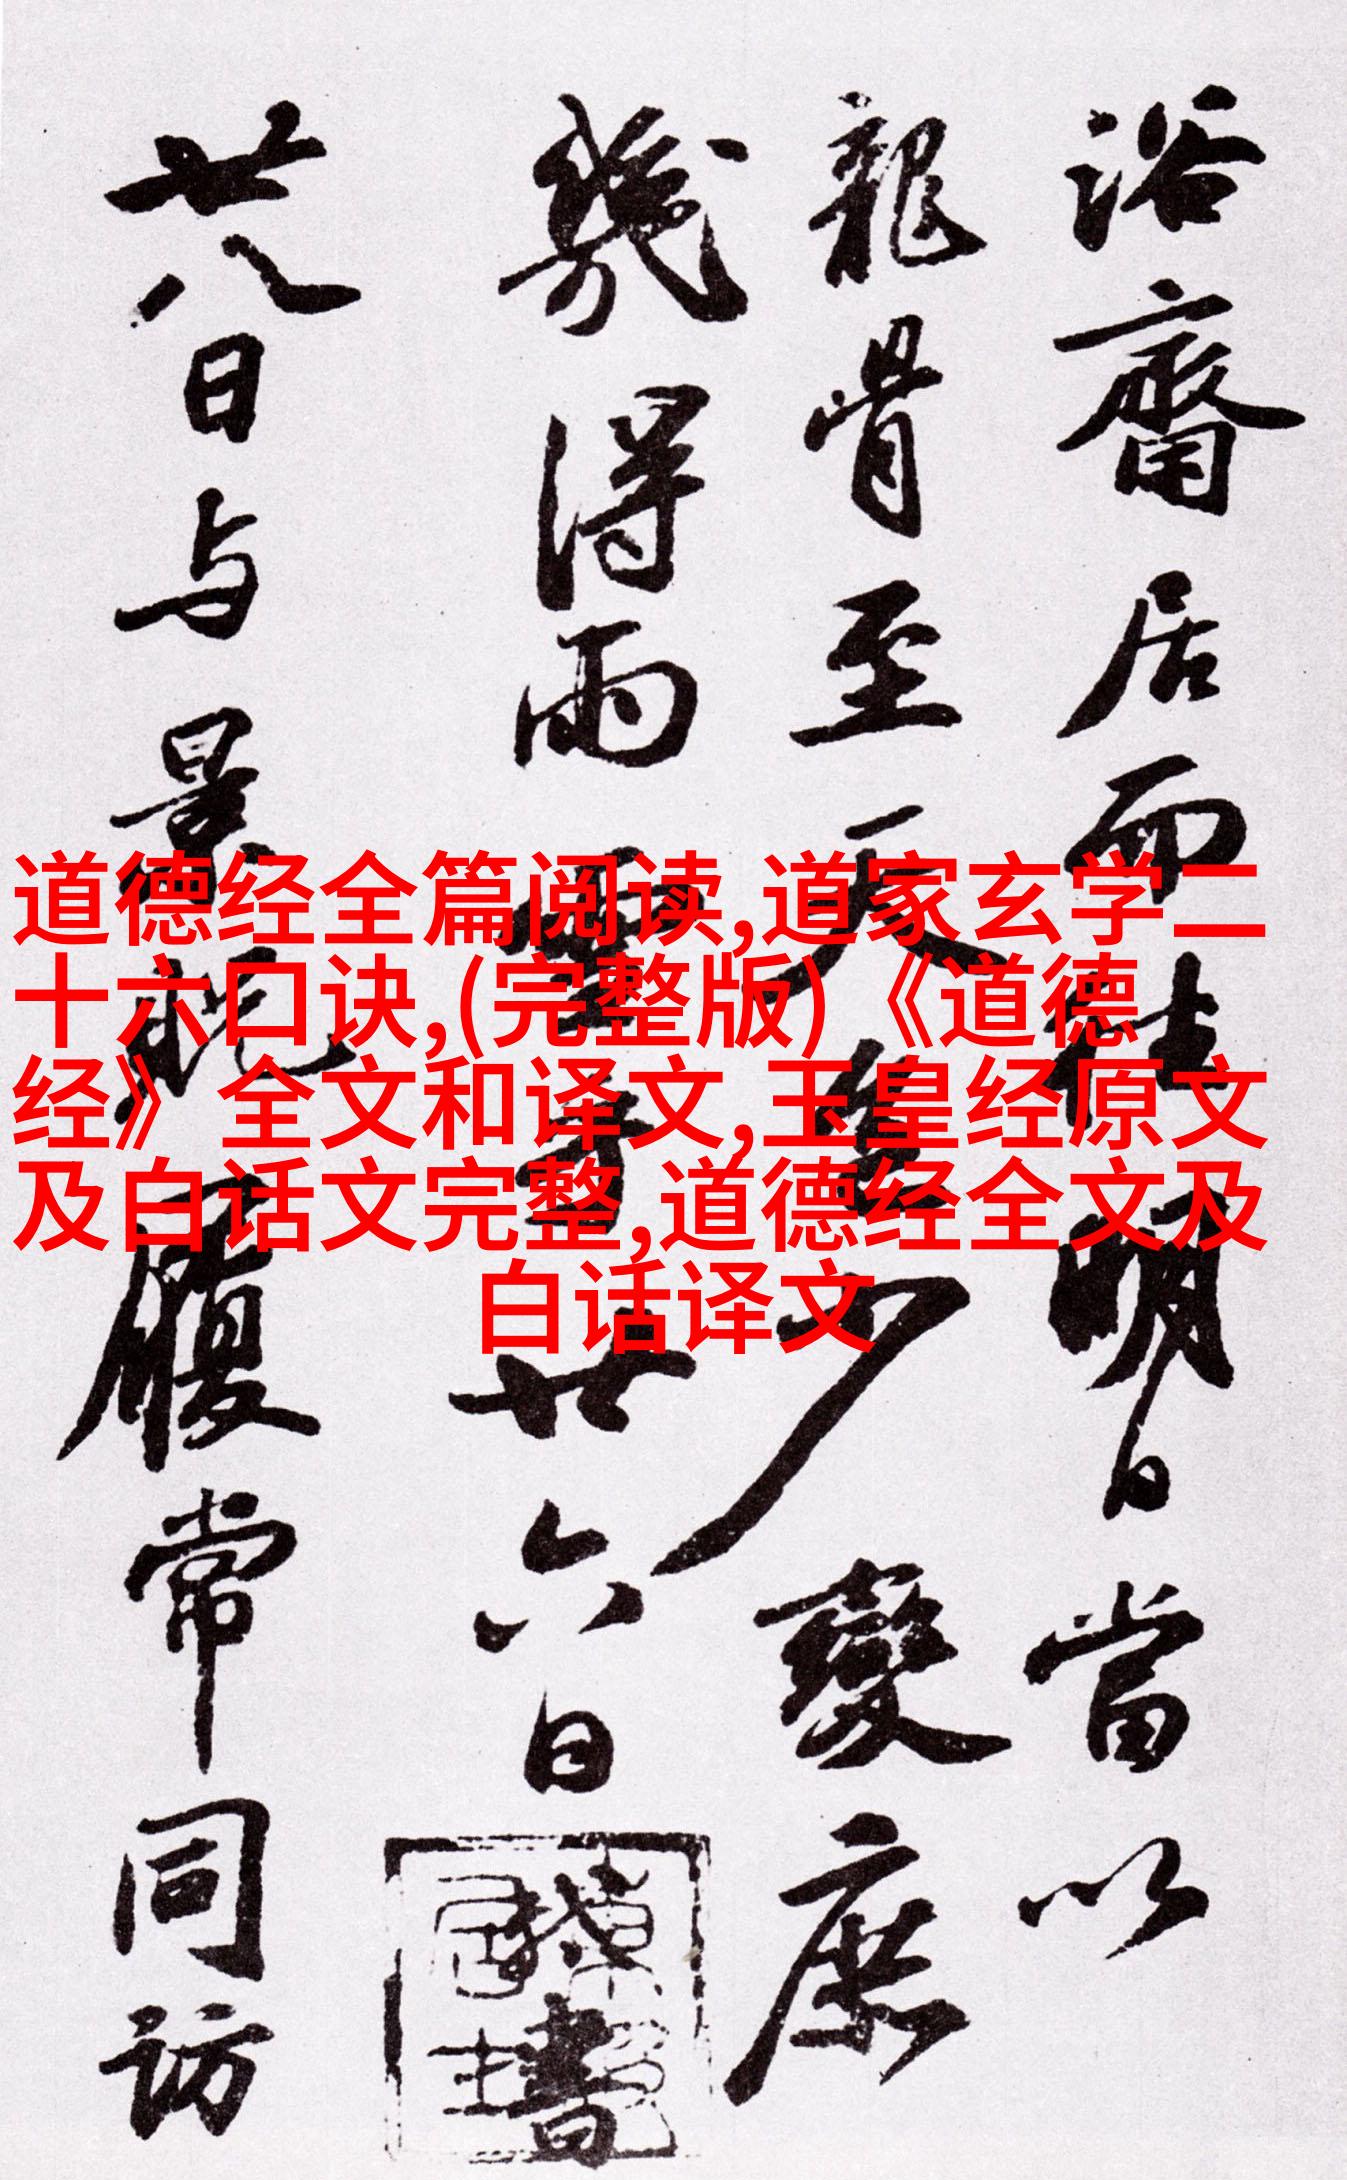 浴齋居而住明日當以
龍骨至天隆少變庶
幾得雨雪耳廿六日
書
廿八日与景親履常同訪
道德经全篇阅读,道家玄学二
十六口诀,(完整版)《道德
经》全文和译文,玉皇经原文
及白话文完整,道德经全文及
白话译文